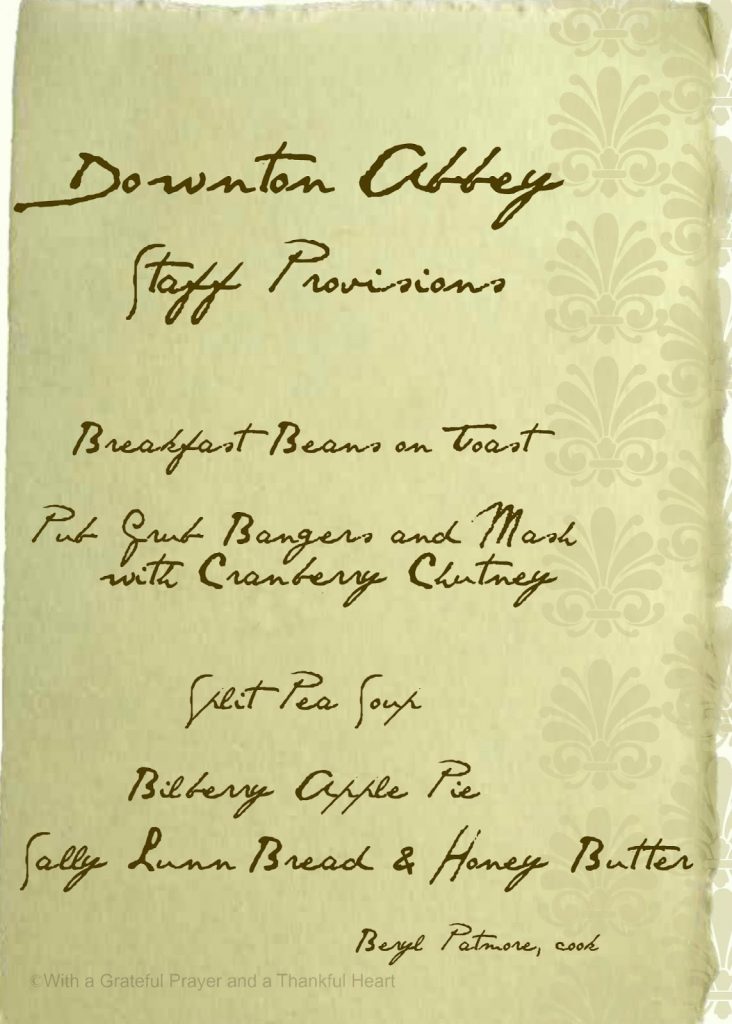 Downton Abbey
Staff Provisions
Breakfast Beans on Toast
Pub Grub Bangers and Mash
with Cranberry Chutney
Split Pea Soup
Bilberry Apple Pie
Sally Lunn Bread & Honey Butter
Beryl Patmore, cook
©With a Grateful Prayer and a Thankful Heart